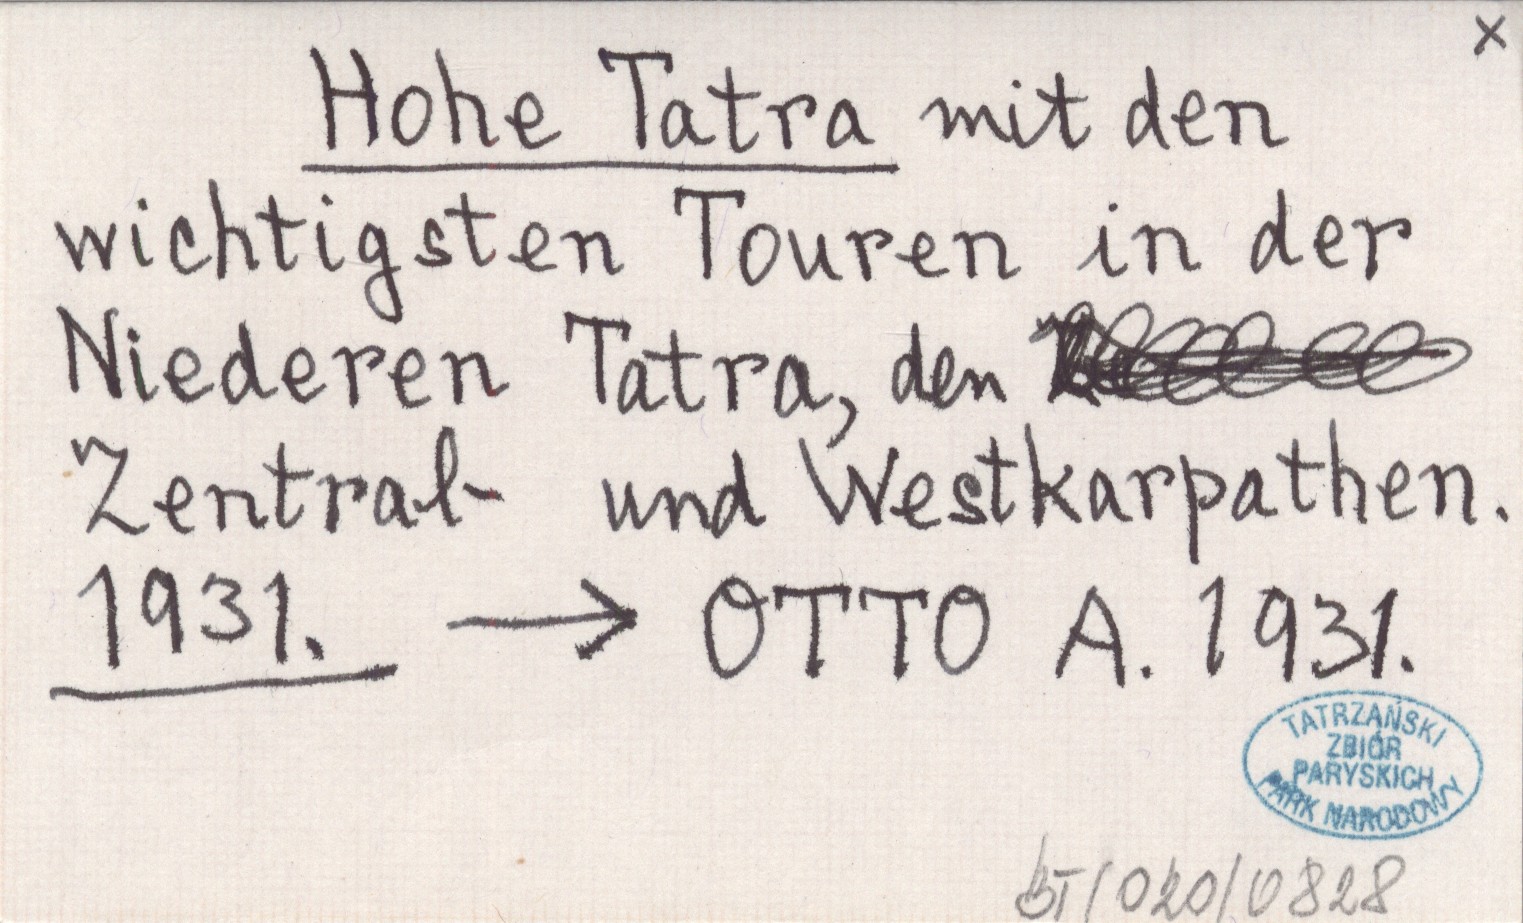 x
Hohe Tatra mit den
wichtigsten Touren in der
Niederen Tatra, den
Zentral- und Westkarpathen.
1931. → OTTO A. 1931.
TATRZAŃSKI
ZBIÓR
PARYSKICH
PARK NARODOWY
BT/020/0828